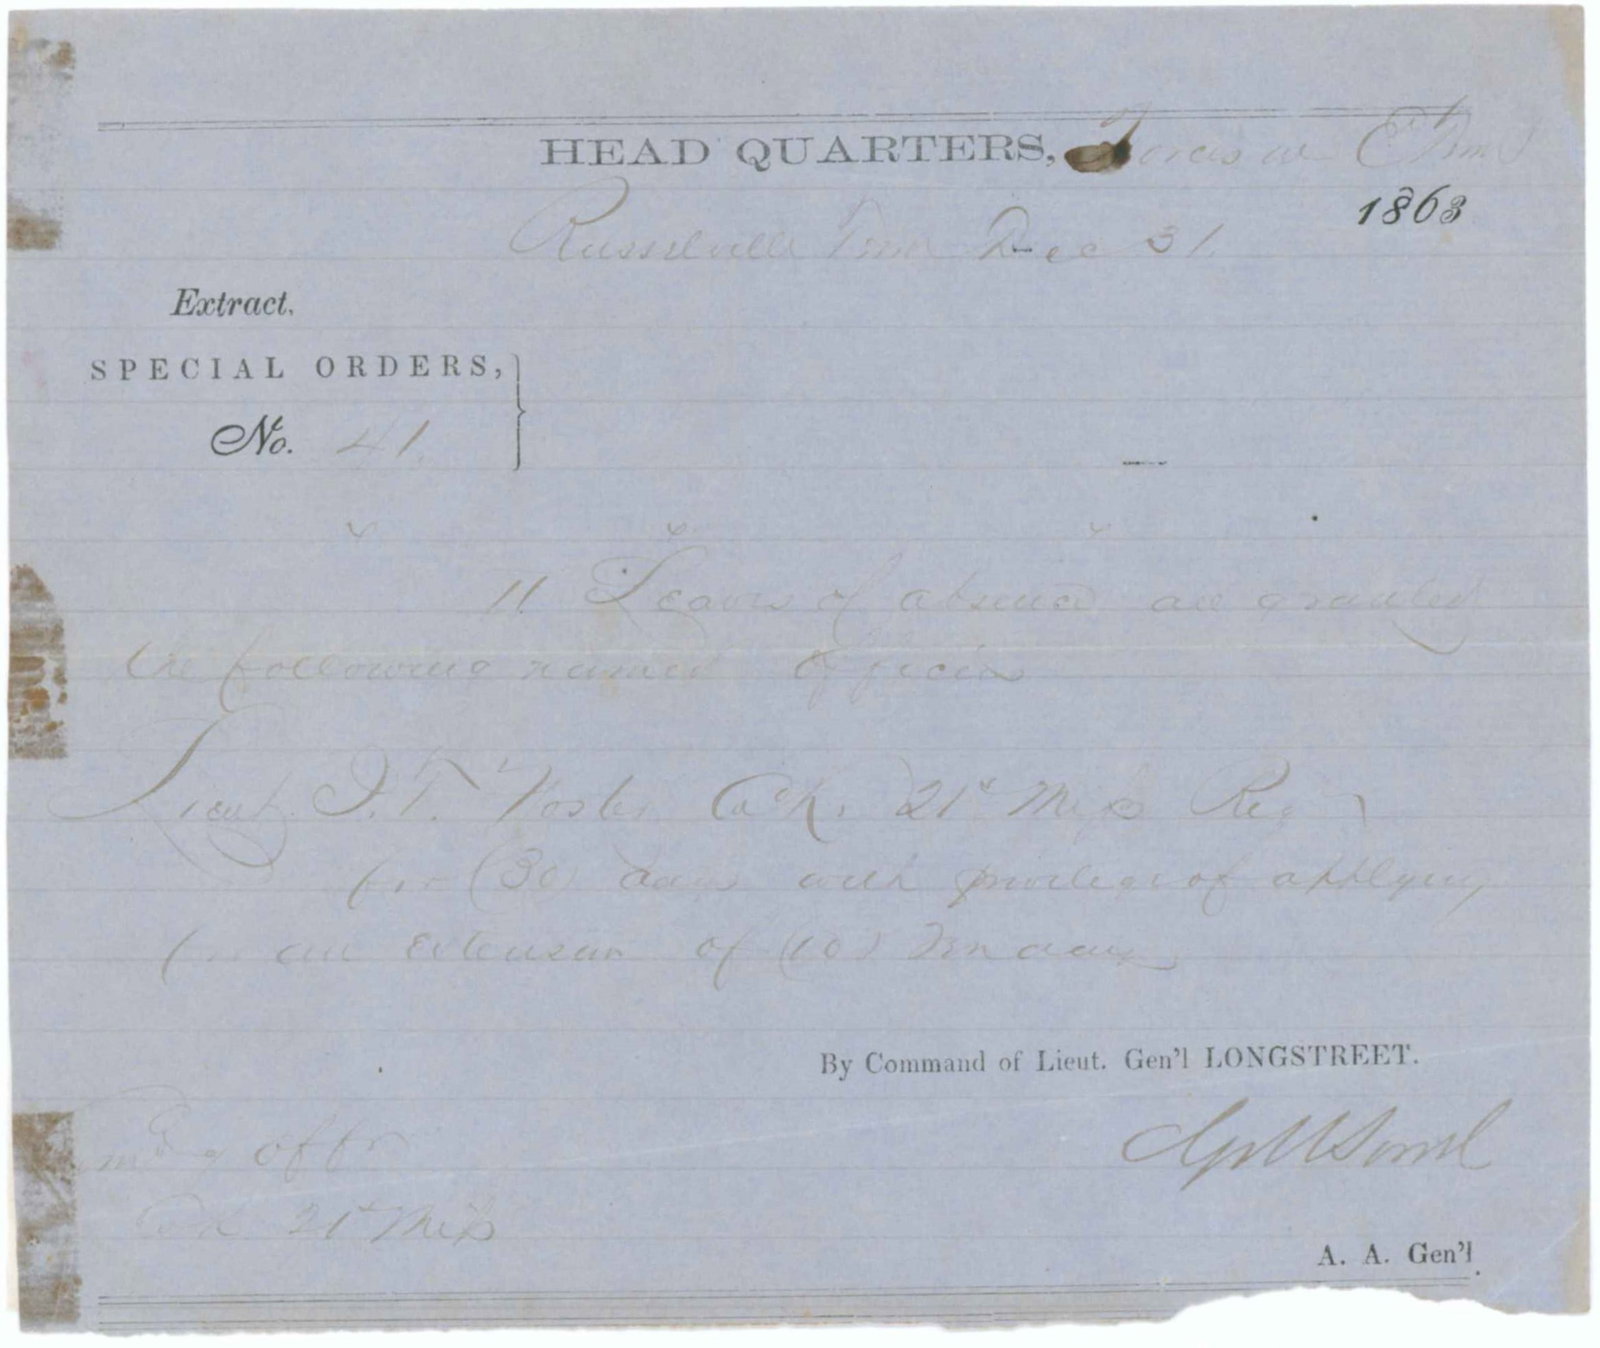 HEAD QUARTERS, Forces in E Tenn
1863
Russelville Tenn Dec 31
Extract.
SPECIAL ORDERS,
No. 41.
11 Leaves of absence are granted
the following named officers
Lieut. J. T. Foster Co "K" 21st Miss Reg
for (30) days with privilege of applying
for an extension of (10) Ten days
By Command of Lieut. Gen'l LONGSTREET.
G M Sorrel
A. A. Gen'l
offr
Co K 21st Miss